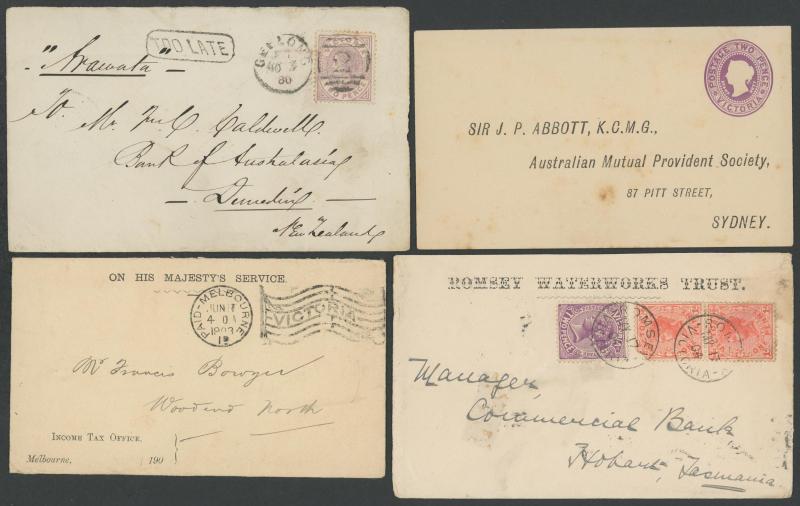 "Arawata"
TOO LATE
GEELONG
80
TWO PENCE
To Mr Fred. Caldwell
Bank of Australasia
Dunedin
New Zealand
POSTAGE TWO PENCE
VICTORIA
SIR J. P. ABBOTT, K.C.M.G.,
Australian Mutual Provident Society,
87 PITT STREET,
SYDNEY.
ON HIS MAJESTY'S SERVICE.
PAID-MELBOURNE
JUN
1903
VICTORIA
Mr Francis Bowyer
Woodend North
INCOME TAX OFFICE.
Melbourne, 190
ROMSEY WATERWORKS TRUST.
ROMSEY
VICTORIA
Manager,
Commercial Bank
Hobart, Tasmania